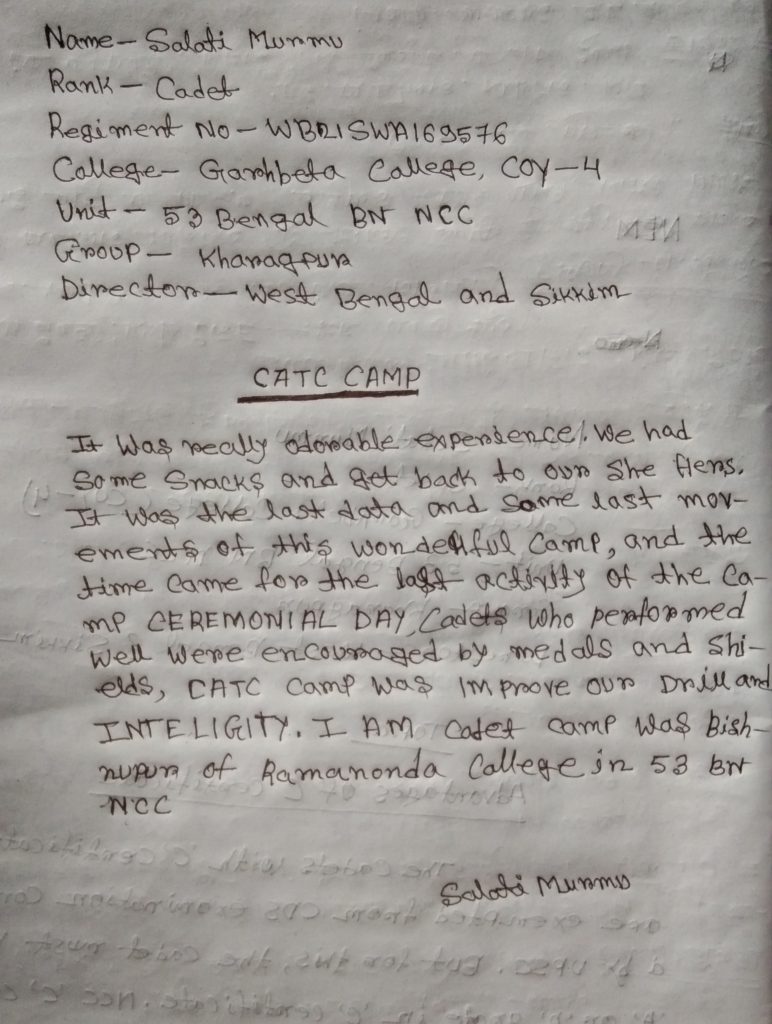 Name - Salati Murmu
Rank - Cadet
Regiment No - WB21SWA169576
College - Garhbeta College, COY-4
Unit - 53 Bengal BN NCC
Group - Kharagpur
Director - West Bengal and Sikkim
CATC CAMP
It was really adorable experience. We had
Some Snacks and get back to our She
It was the last data and some last mov-
ements of this wonderful Camp, and the
time came for the last activity of the Ca-
mp CEREMONIAL DAY, Cadets who performed
well were encouraged by medals and Shi-
elds, CATC Camp was IMProove our Drill and
INTELIGITY. I AM Cadet camp was Bish-
nupur of Ramanonda College in 53 BN
NCC
Salati Murmu